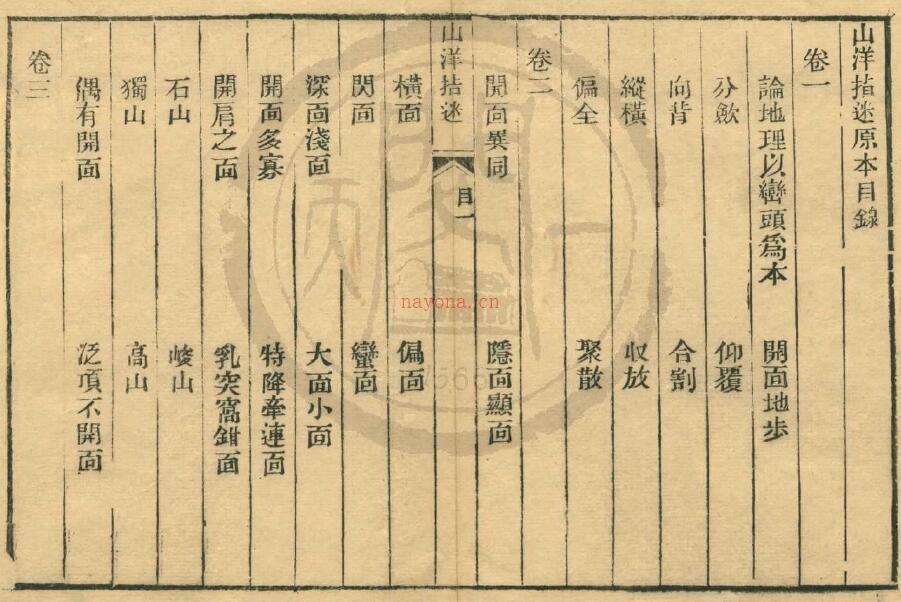 山洋指迷原本目錄
卷一
論地理以巒頭爲本 開面地步
分歛 仰覆
向背 合割
縱橫 収放
偏全 聚散
卷二
開面異同 隱面顯面
山洋指迷 目一
橫面 偏面
閃面 蠻面
深面淺面 大面小面
開面多寡 特降牽連面
開肩之面 乳突窩鉗面
石山 峻山
獨山 高山
偶有開面 泛項不開面
卷三
nayona.cn